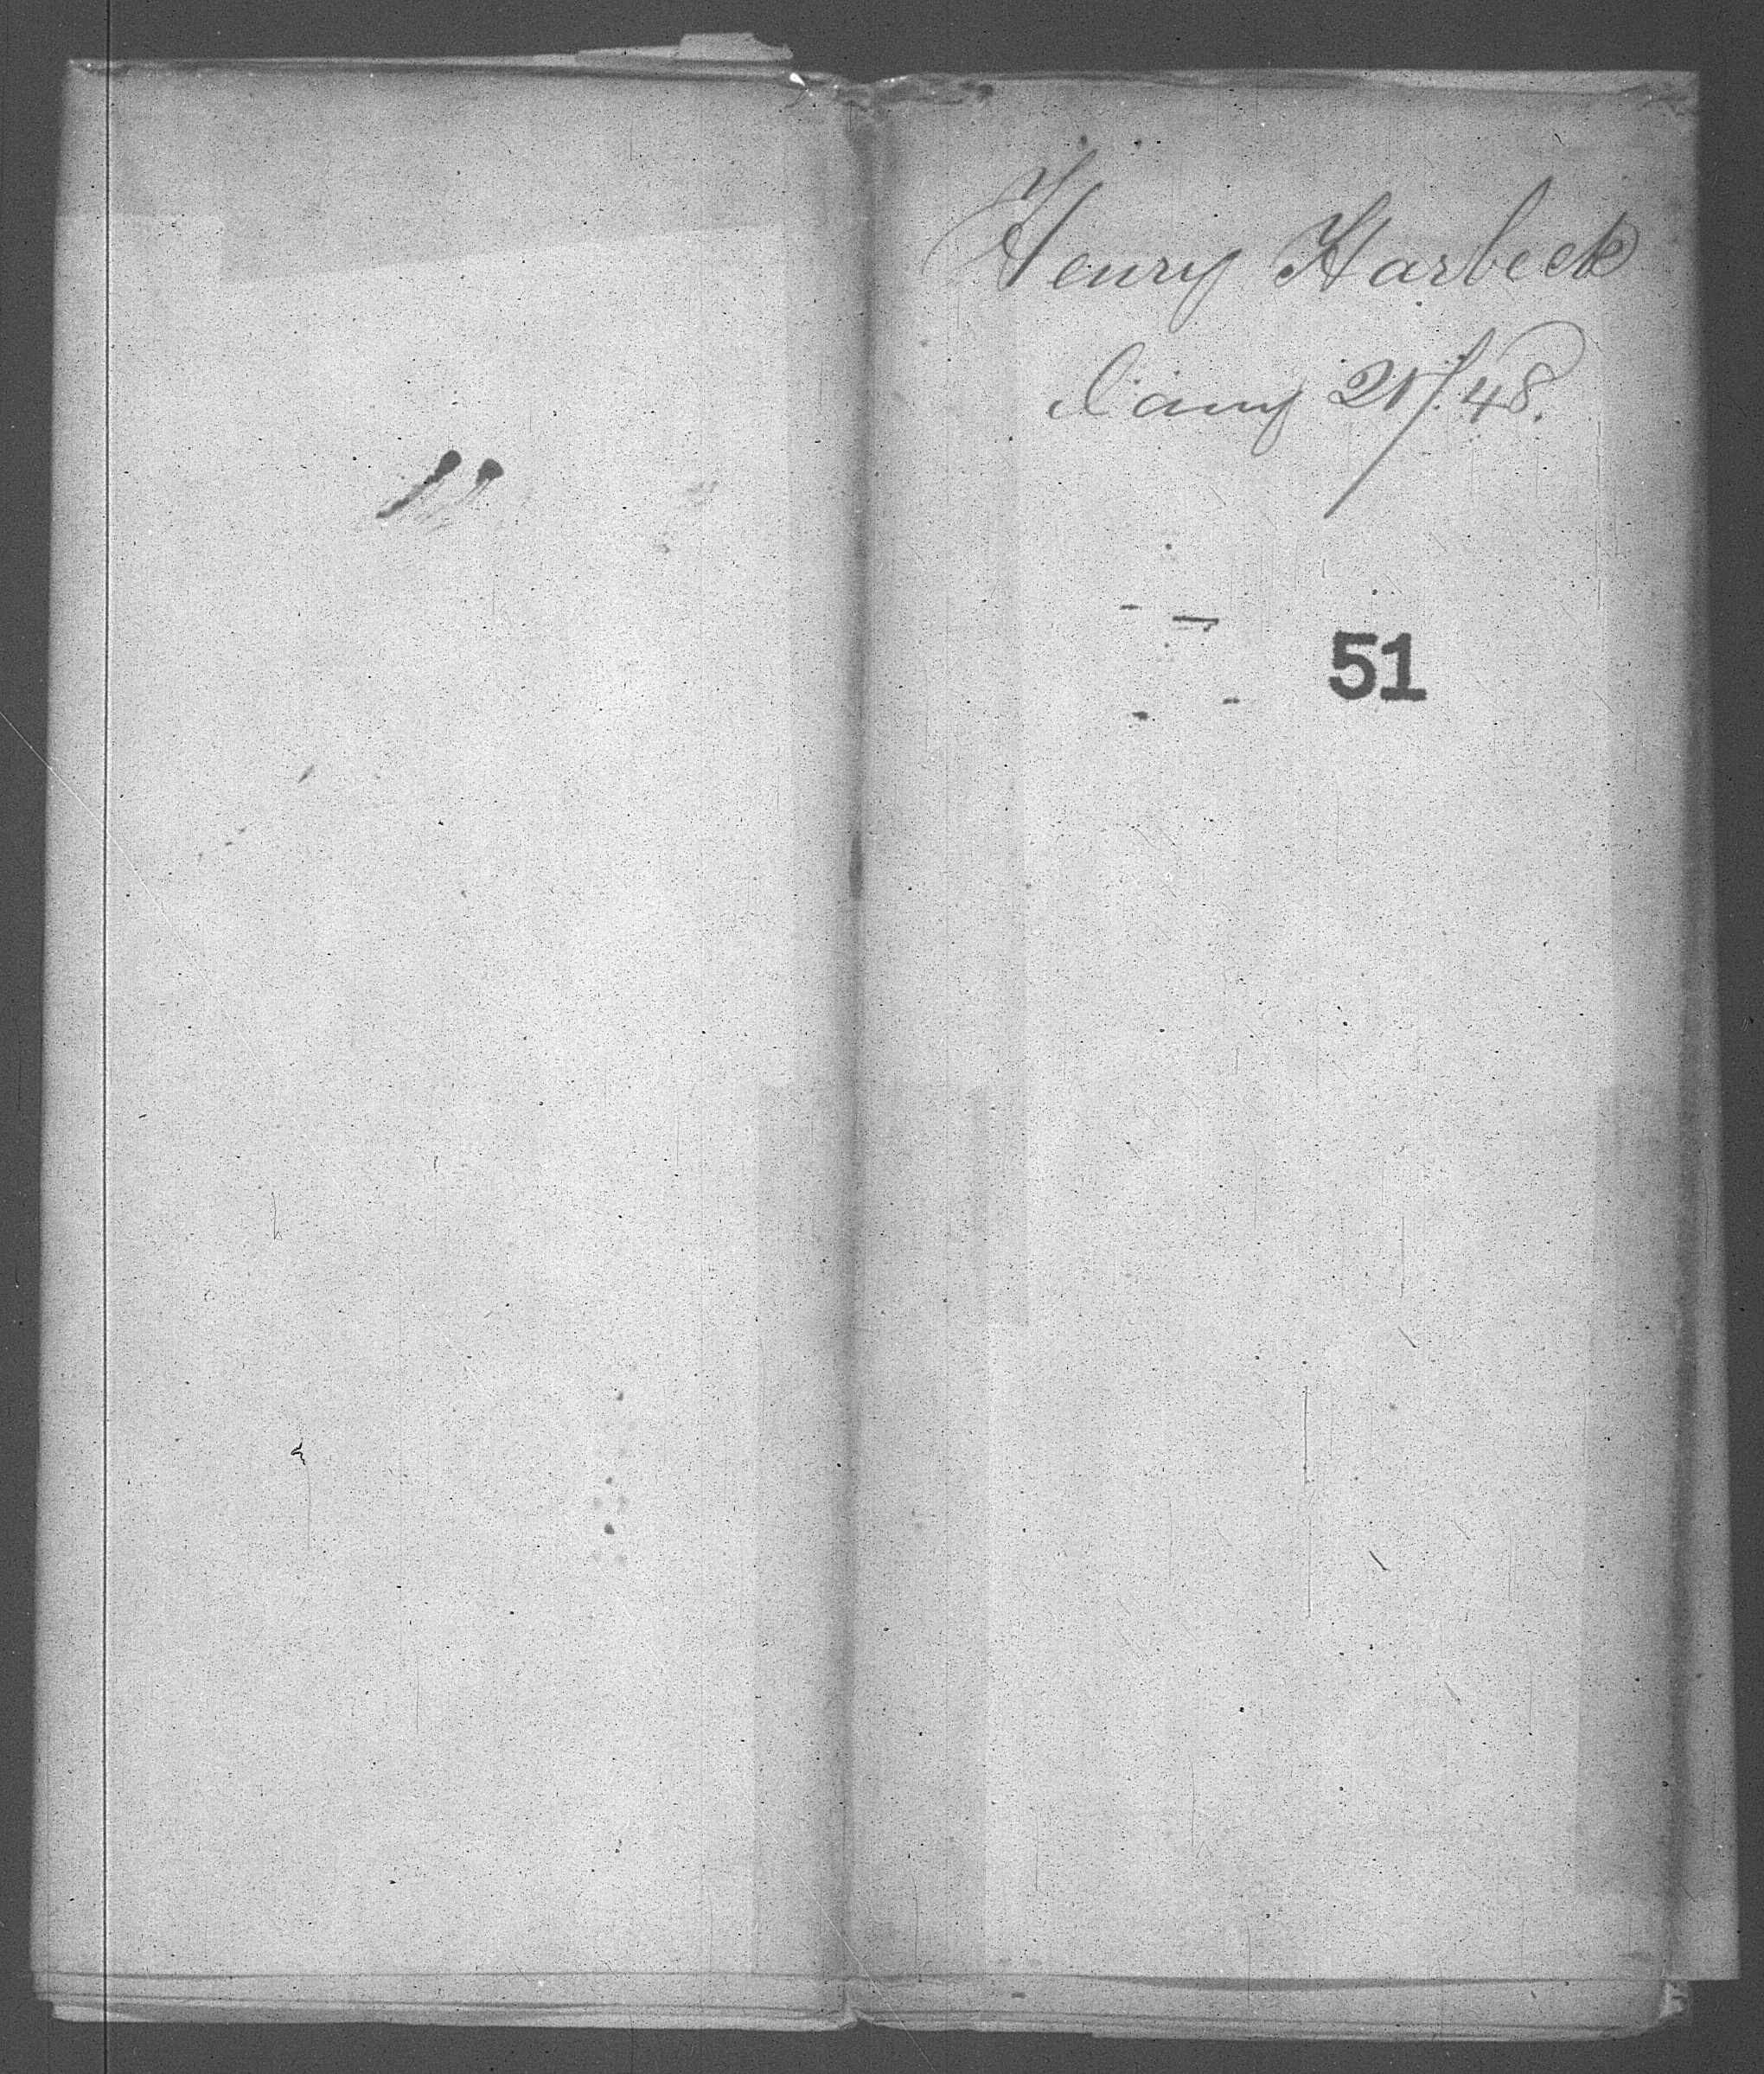 Henry Harbeck
Jany 21/48.
51